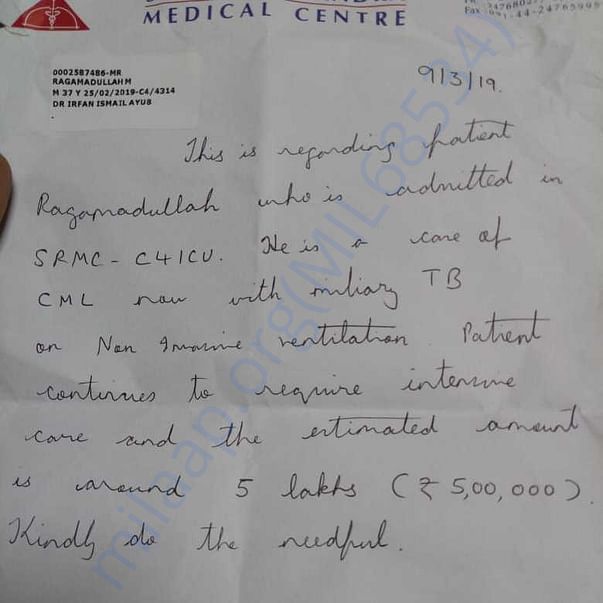 MEDICAL CENTRE
Fax : 091-44-24765995
0002587486-MR
RAGAMADULLAH M
M 37 Y 25/02/2019-C4/4314
DR IRFAN ISMAIL AYUB
9/3/19.
This is regarding patient
Ragamadullah who is admitted in
SRMC - C4ICU. He is a case of
CML now with miliary TB
on Non Invasive ventilation. Patient
continues to require intensive
care and the estimated amount
is around 5 lakhs (₹ 5,00,000).
Kindly do the needful.
milaap.org(MIL68534)